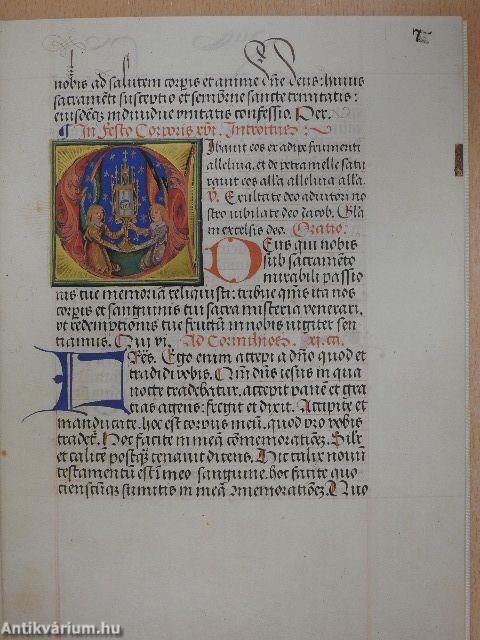 nobis ad salutem corpis et anime dne deus: huius
sacramēti susceptio et sempitne sancte trinitatis:
eiusdēqz indiuidue vnitatis confessio. Per.
In Festo Corporis xpi. Introitus:
Cibauit eos ex adipe frumenti
alleluia. et de petra melle satu
rauit eos alla alleluia alla.
V. Exultate deo adiutori no
stro iubilate deo iacob. Gla
in excelsis deo. Oratio.
Deus qui nobis
sub sacramēto
mirabili passio
nis tue memoriam reliquisti: tribue qms ita nos
corpis et sanguinis tui sacra misteria venerari.
vt redemptionis tue fructū in nobis iugiter sen
tiamus. Qui vi. Ad Corinthios. xi. ca.
Fres. Ego enim accepi a dno quod et
tradidi vobis. Qm dns iesus in qua
nocte tradebatur. accepit panē et gra
tias agens: fregit et dixit. Accipite et
manducate. hoc est corpus meū. quod pro vobis
tradet. Hoc facite in meā cōmemorationez. Silr
et calicē postqz cenauit dicens. Hic calix nouū
testamentū est i meo sanguine. hoc facite quo
ciēscūqz sumitis in meā 2memorationez. Quo
Antikvárium.hu